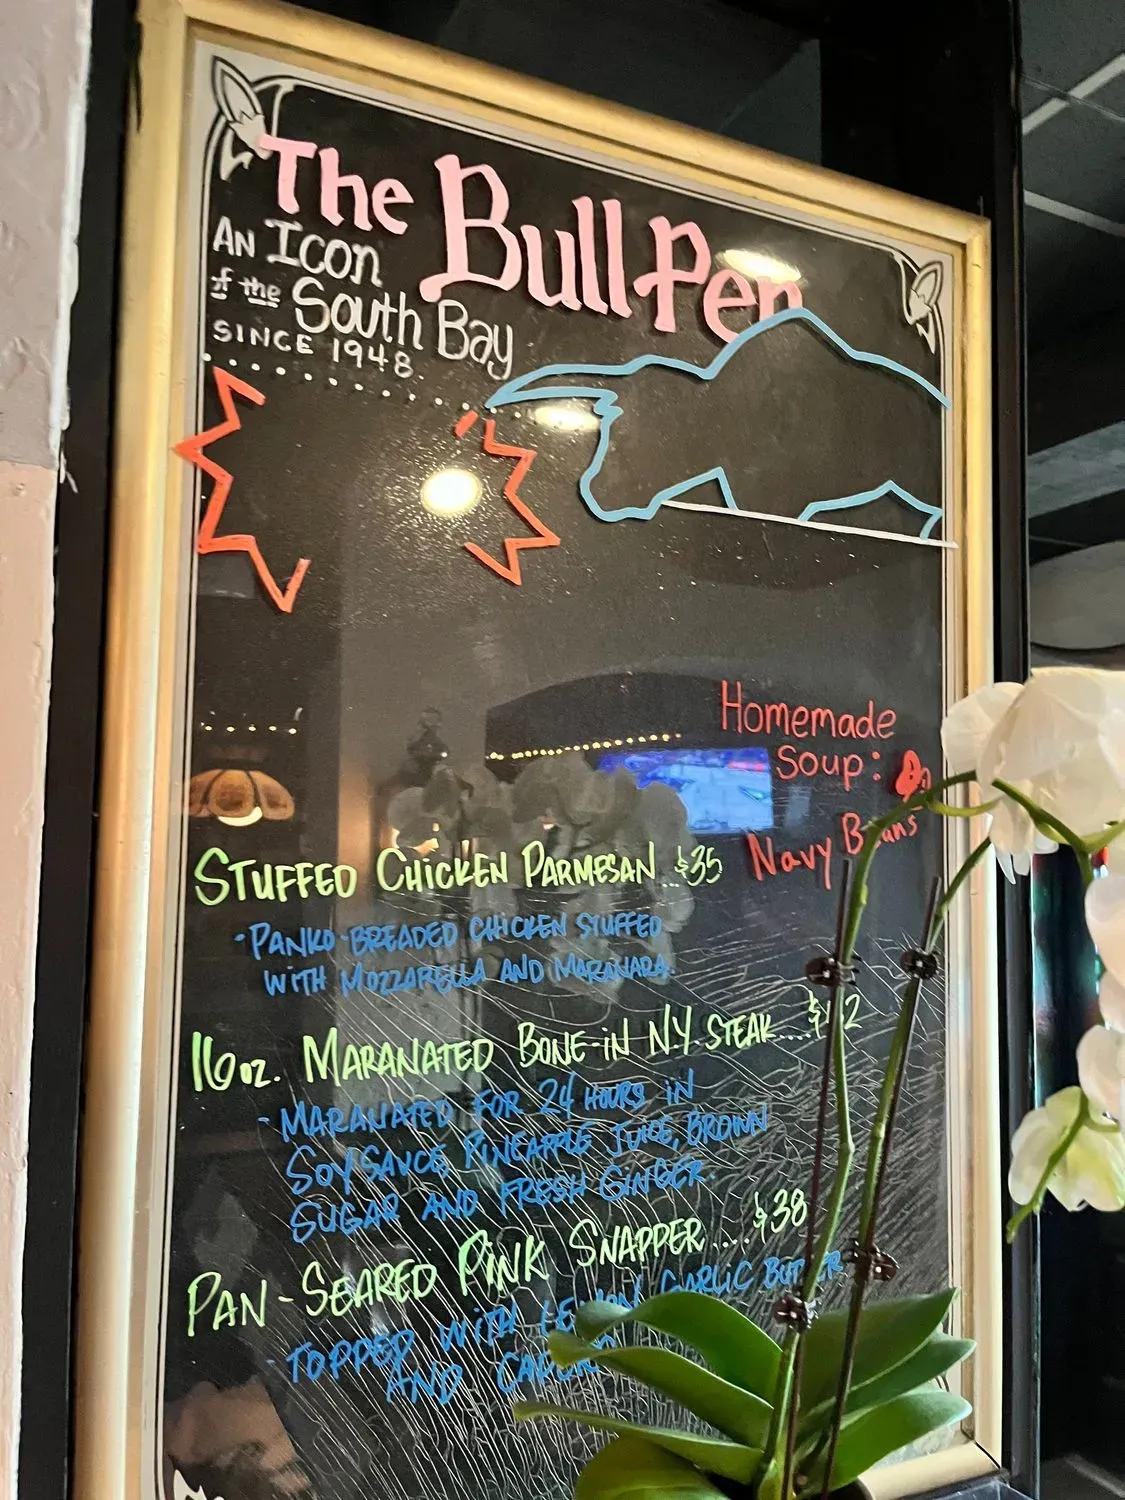 The Bull Pen
AN ICON
of the South Bay
SINCE 1948
Homemade
Soup:
Navy
STUFFED CHICKEN PARMESAN...$35
- PANKO-BREADED CHICKEN STUFFED
WITH MOZZARELLA AND MARANARA.
16oz. MARANATED BONE-IN N.Y. STEAK....
- MARANATED FOR 24 HOURS IN
SOY SAUCE, PINEAPPLE JUICE, BROWN
SUGAR AND FRESH GINGER
PAN-SEARED PINK SNAPPER....$38
- TOPPED WITH GARLIC
AND